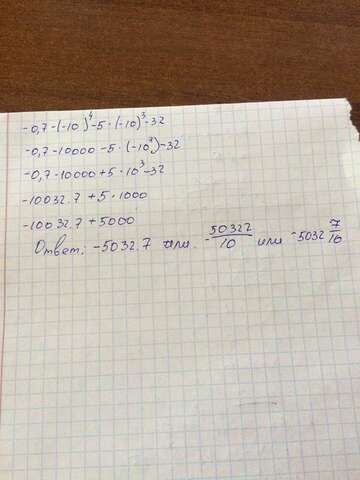 -0,7-(-10)⁴-5·(-10)³-32
-0,7-10000-5·(-10³)-32
-0,7-10000+5·10³-32
-10032.7+5·1000
-10032.7+5000
Ответ: -5032.7 или -50327/10 или -5032 7/10